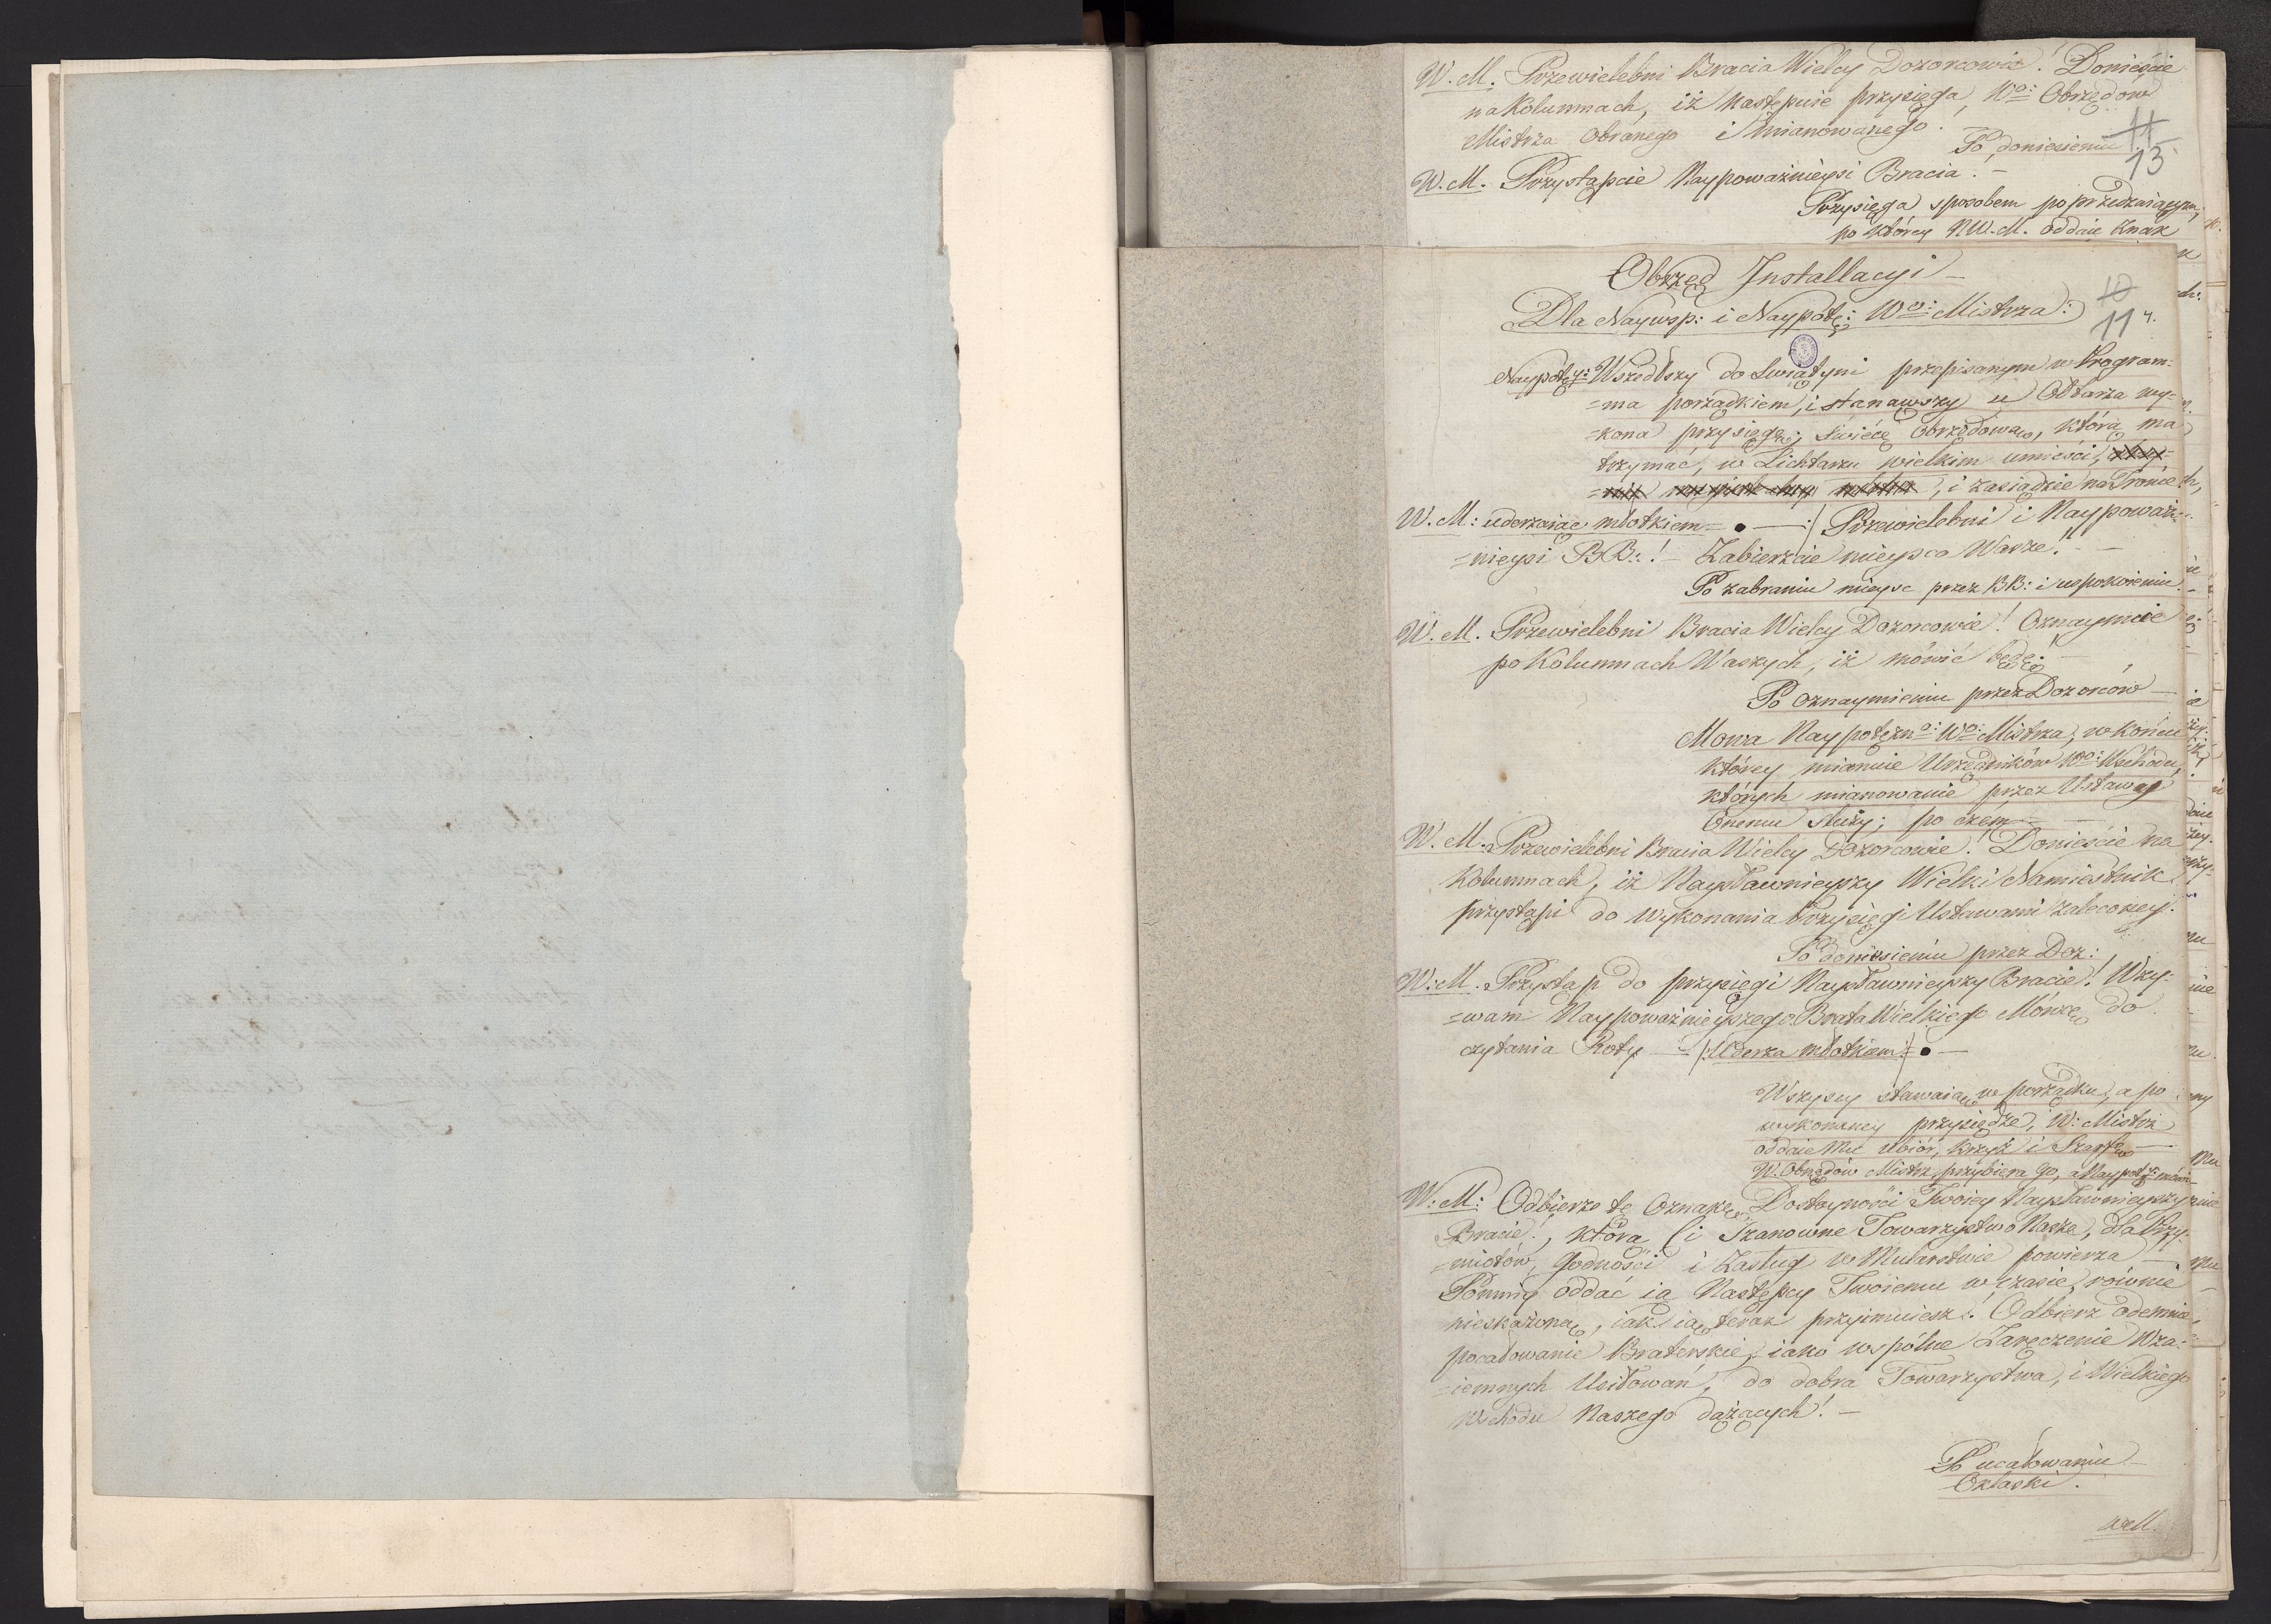 W. M. Przewielebni Bracia Wielcy Dozorcowie! Donieście
na Kolumnach, iż następuie przysięga, Wgo: Obrzędów
Mistrza Obranego i mianowanego.
Po doniesieniu
11
13
W. M. Przystąpcie Naypoważnieysi Bracia! –
Przysięga sposobem poprzedzaiącym,
po którey NW. M. oddaie Znak
Obrzęd Installacyi –
Dla Naywsp: i Naypotę: Wgo: Mistrza:
10
11
Naypotęż: Wszedłszy do Swiątyni przepisanym w Program-
=ma porządkiem, i stanąwszy u Ołtarza wy-
=kona przysięgę; świécę obrzędową, którą ma
trzymać, w Lichtarzu wielkim umieści,
, i zasiądzie na Tronie
W. M: uderzaiąc młotkiem = • — :/ Przewielebni i Naypoważ-
=nieysi BB:! – Zabierzcie mieysca Wasze! –
Po zabraniu mieysc przez BB: i uspokoieniu
W. M. Przewielebni Bracia Wielcy Dozorcowie! Oznaymcie
po Kolumnach Waszych, iż mówić będę –
Po oznaymieniu przez Dozorców –
Mowa Naypotężngo: Wgo: Mistrza, w końcu
którey mianuie Urzędników Wgo: Wschodu,
których mianowanie przez Ustawę
Onemu służy; po czem –
W. M: Przewielebni Bracia Wielcy Dozorcowie! Donieście na
Kolumnach, iż Naysławnieyszy Wielki Namiestnik
przystąpi do wykonania Przysięgi Ustawami zaleconey.
Po doniesieniu przez Doz:
W: M. Przystąp do przysięgi Naysławnieyszy Bracie! Wzy-
=wam Naypoważnieyszego Brata Wielkiego Mówcę do
czytania Roty — /: Uderza młotkiem :/ • —
Wszyscy stawaią w porządku, a po
wykonaney przysiędze, W: Mistrz
oddaie Mu ubiór, krzyż i Szarfę –
W: Obrzędów Mistrz przybiera go, a Naypotęż: mówi –
W: M: Odbierz tę Oznakę Dostoyności Twoiey Naysławnieyszy
Bracie!, którą Ci Szanowne Towarzystwo Nasze, dla Przy-
=miotów, godności i Zasług w Mularstwie powierza –
Pomniy oddać ią Następcy Twoiemu w czasie, równie
nieskażoną, iak ią teraz przyimuiesz! Odbierz odemnie
pocałowanie Braterskie, iako wspólne Zaręczenie Wza-
=iemnych Usiłowań, do dobra Towarzystwa, i Wielkiego
Wschodu Naszego dążących! –
Po ucałowaniu
Oklaski.